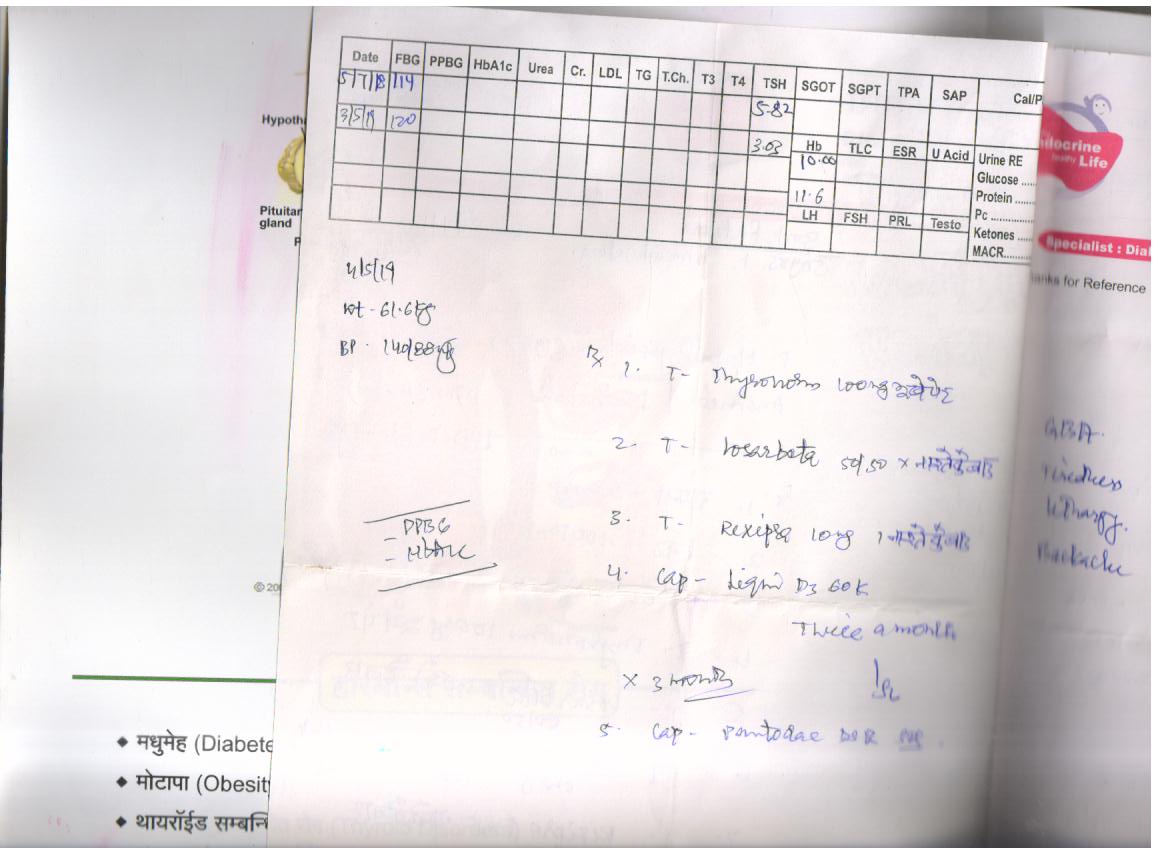 Date FBG PPBG HbA1c Urea Cr. LDL TG T.Ch. T3 T4 TSH SGOT SGPT TPA SAP Cal/P
5/7/18 114 5.82
3/5/19 120 3.03
Hb TLC ESR U Acid Urine RE
10.00 Glucose ....
11.6 Protein ......
LH FSH PRL Testo Pc ............
Ketones .....
MACR.......
Hypoth
Pituitar
gland
P
docrine
healthy Life
Specialist : Dial
anks for Reference
4/5/19
wt - 61.6kg
BP - 140/88
Rx 1. T- Thyronorm 100mg खाली पेट
2. T- Losarbeta 50/50 x नाश्ते के बाद
3. T- Rexipra 10mg 1 नाश्ते के बाद
PPBG
- HbA1c
4. Cap - Liquin D3 60K
Twice a month
x 3 months
5. Cap - Pantodac DSR
GBA.
Tiredness
lethargy.
Backache
© 20
◆ मधुमेह (Diabete
◆ मोटापा (Obesit
◆ थायरॉईड सम्बन्धि